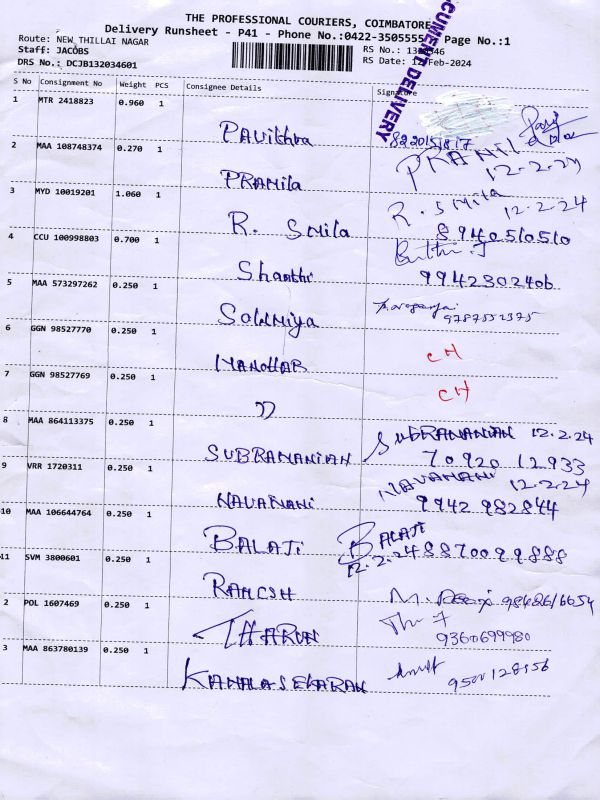 THE PROFESSIONAL COURIERS, COIMBATORE
Delivery Runsheet - P41 - Phone No.:0422-3505555 Page No.:1
Route: NEW THILLAI NAGAR
Staff: JACOBS RS No.:
DRS No.: DCJB132034601 RS Date: Feb-2024
CUMENT DELIVERY
S No Consignment No Weight PCS Consignee Details Signature
1 MTR 2418823 0.960 1 Pavithra
2 MAA 108748374 0.270 1 PRAMila 12-2-24
3 MYD 10019201 1.060 1 R. SMila R. SMila 12-2-24
8940510510
4 CCU 100998803 0.700 1 Shanthi
9942302406
5 MAA 573297262 0.250 1 SOWMiya
9787552375
6 GGN 98527770 0.250 1 MANOHAR CH
7 GGN 98527769 0.250 1 CH
8 MAA 864113375 0.250 1 SUBRAMANIAN SUBRAMANIAN 12-2-24
70920 12933
9 VRR 1720311 0.250 1 NAVAMANI NAVAMANI 12-2-24
9942 982844
10 MAA 106644764 0.250 1 BALAJI BALAJI
12-2-24 8870099888
11 SVM 3800601 0.250 1 RAMESH M.
2 POL 1607469 0.250 1 THARUN
9360699980
3 MAA 863780139 0.250 1 KAMALASEKARAN